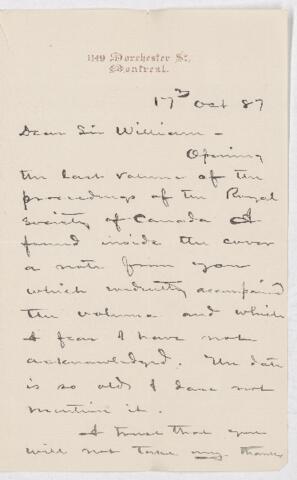 1149 Dorchester St,
Montreal.
17th Oct 87
Dear Sir William -
Opening
the last volume of the
proceedings of the Royal
Society of Canada I
found inside the cover
a note from you
which
the volume and which
I fear I have not
acknowledged. The date
is so old I dare not
mention it.
I trust that you
will not take my thanks